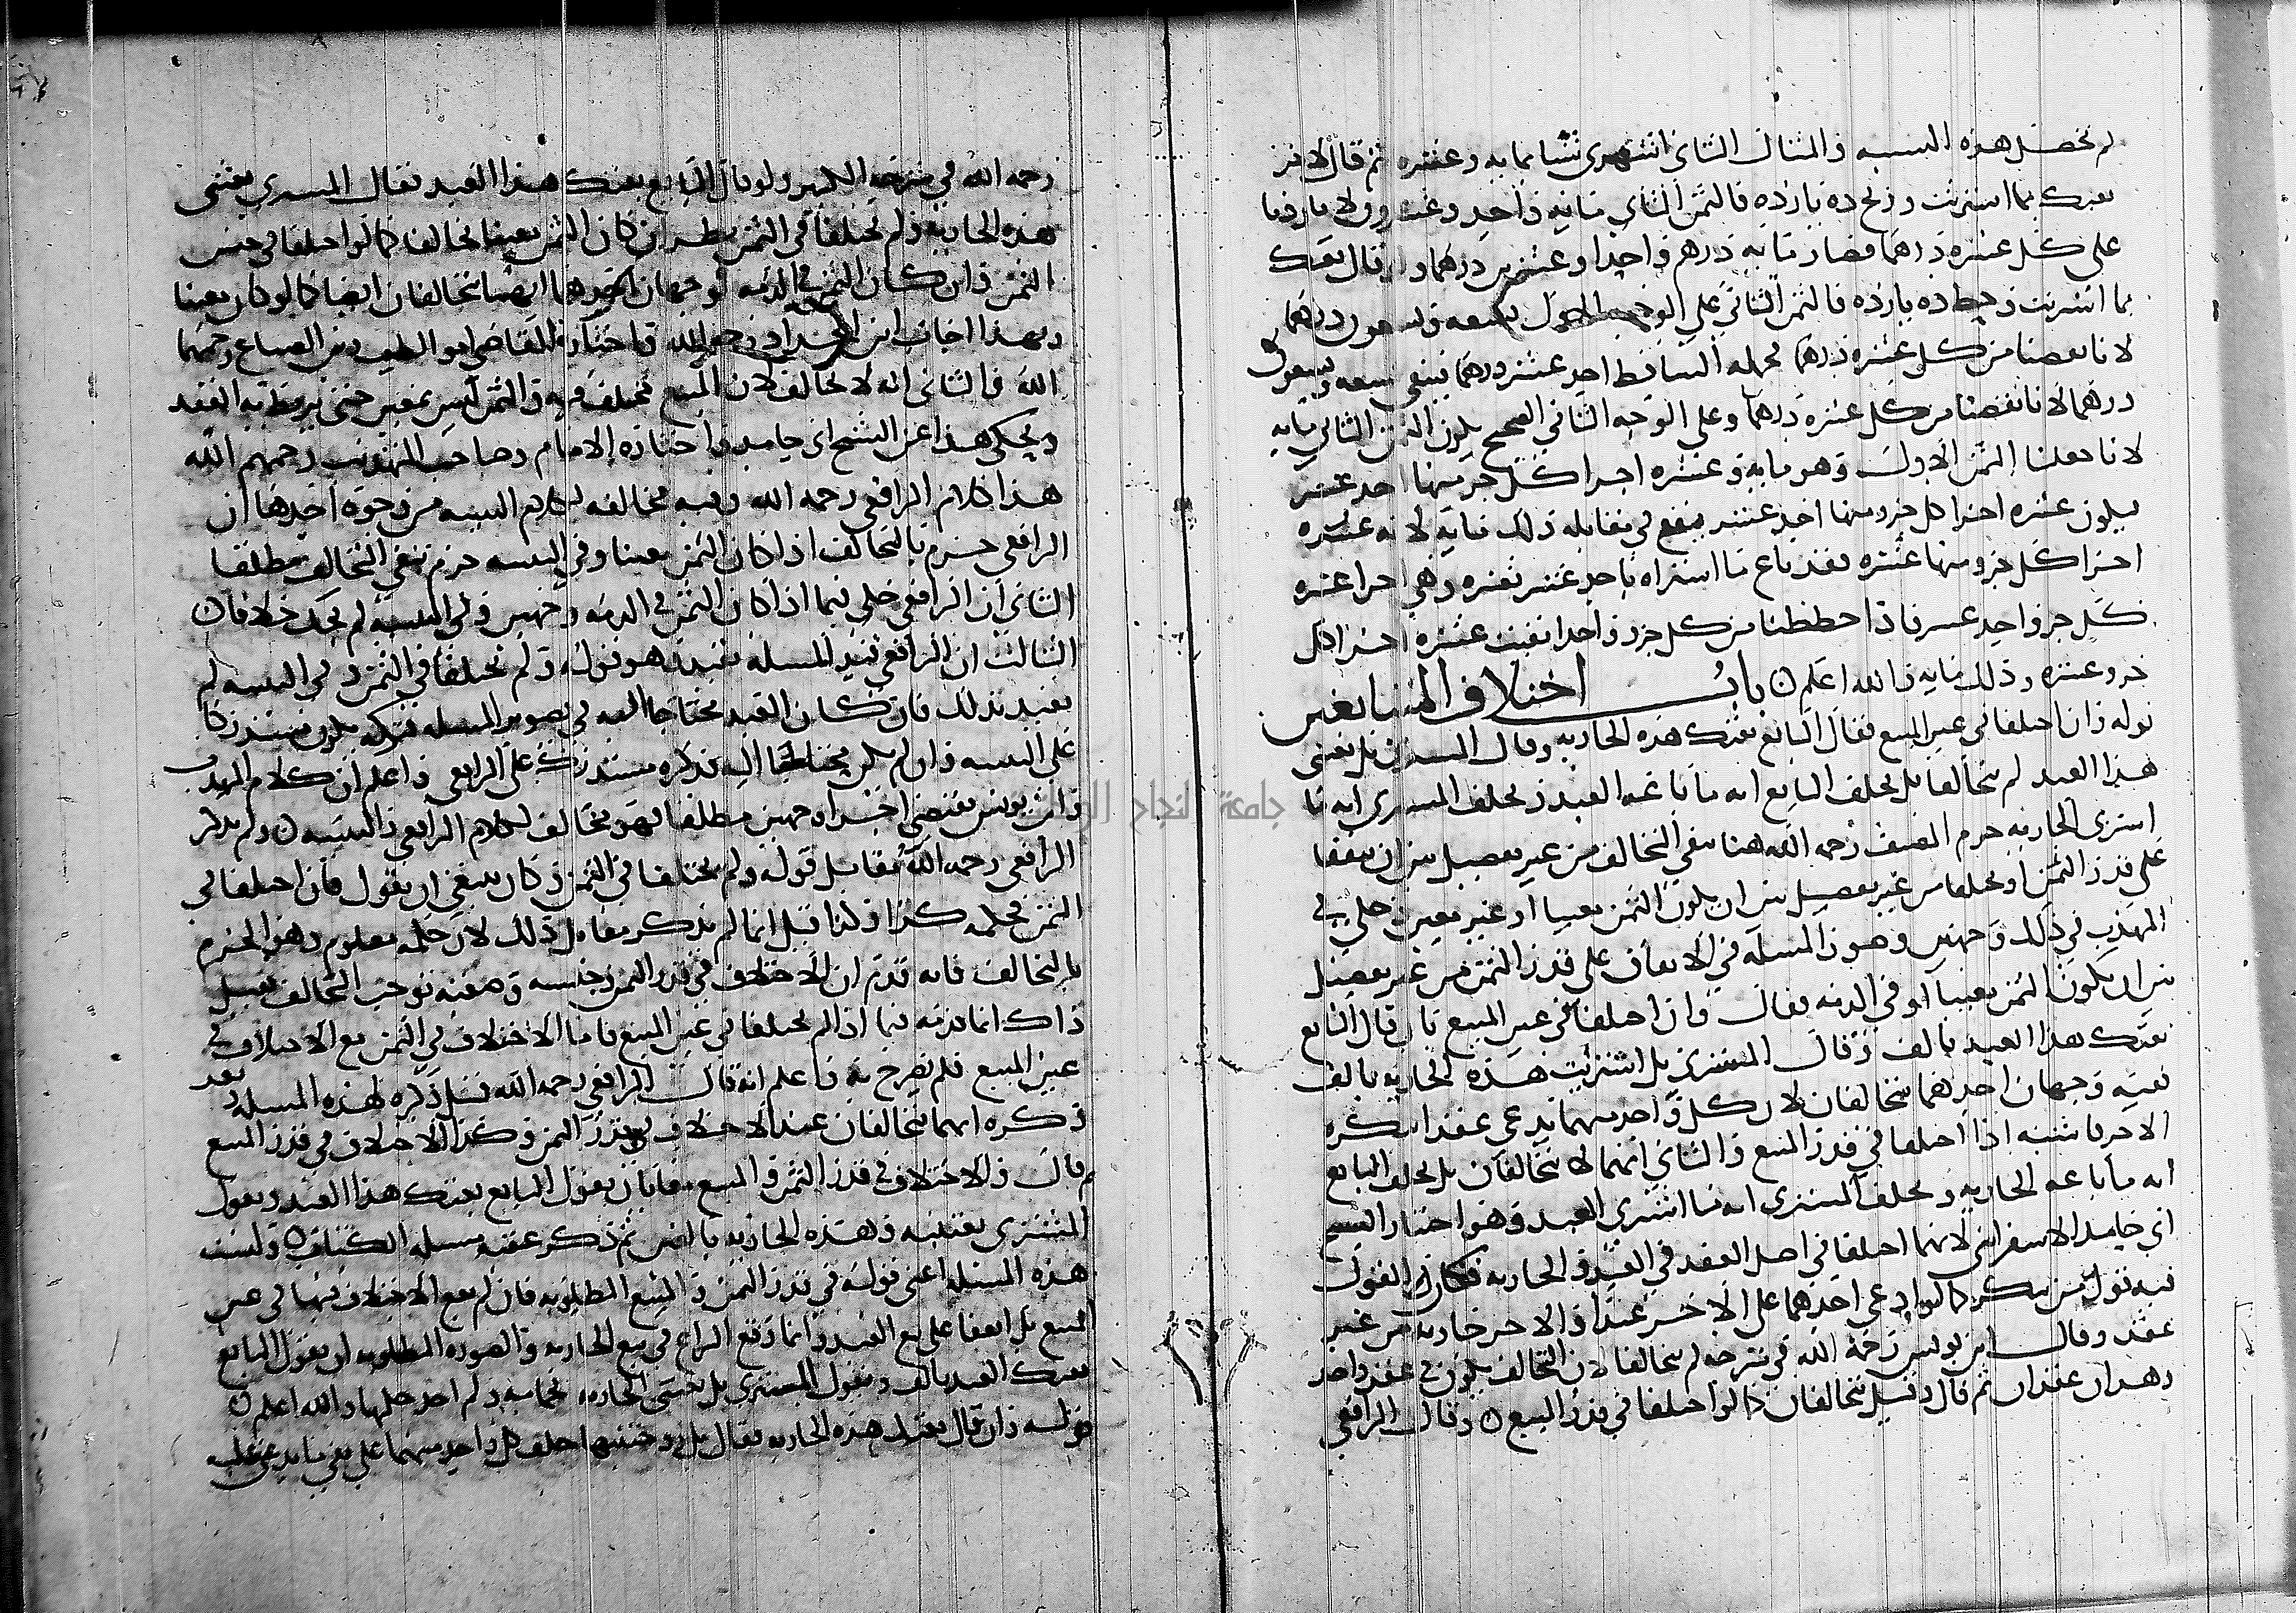 لم تحصل هذه النسبه والمثال الثاني اشترى شيا بمايه وعشره ثم قال لاخر
بعتك بما اشتريت وربح ده يازده فالثمن الثاني مايه واحد وعشرون لانا زدنا
على كل عشره درهما فصار مايه درهم واحدا وعشرين درهما ولو قال بعتك
بما اشتريت وحط ده يازده فالثمن الثاني على الوجه الاول تسعه وتسعون درهما
لانا نقصنا من كل عشره درهما فجمله الساقط احد عشر درهما فيبقى تسعه وتسعون
درهما لانا نقصنا من كل عشره درهما وعلى الوجه الثاني الصحيح يكون الثمن الثاني مايه
لانا جعلنا الثمن الاول وهو مايه وعشره اجزا كل جز منها احد عشر
يكون عشره اجزا كل جزو منها احد عشر فيقع في مقابله ذلك مايه لانه عشره
اجزا كل جزو منها عشره فقد باع ما اشتراه باحد عشر بعشره وهي اجزا عشره
كل جز واحد عشر فاذا حططنا من كل جزو واحدا بقيت عشره اجزا كل
جزو عشره وذلك مايه والله اعلم باب اختلاف المتبايعين
قوله وان اختلفا في عين المبيع فقال البايع بعتك هذه الجاريه وقال المشتري بل بعتني
هذا العبد لم يتحالفا بل يحلف البايع انه ما باعه العبد ويحلف المشتري انه ما
اشترى الجاريه جزم المصنف رحمه الله هنا بنفي التحالف من غير تفصيل بين ان يتفقا
على قدر الثمن او يختلفا من غير تفصيل بين ان يكون الثمن معينا او غير معين وحكى في
المهذب في ذلك وجهين وصور المسله في الاتفاق على قدر الثمن من غير تفصيل
بين ان يكون الثمن معينا او في الذمه فقال وان اختلفا في عين المبيع بان قال البايع
بعتك هذا العبد بالف وقال المشتري بل اشتريت هذه الجاريه بالف
ففيه وجهان احدهما يتحالفان لان كل واحد منهما يدعي عقدا ينكره
الاخر فاشبه اذا اختلفا في قدر المبيع والثاني انهما لا يتحالفان بل يحلف البايع
انه ما باعه الجاريه ويحلف المشتري انه ما اشترى العبد وهو اختيار الشيخ
ابي حامد الاسفرايني لانهما اختلفا في اصل العقد في العبد والجاريه فكان القول
فيه قول من ينكر كما لو ادعى احدهما على الاخر عبدا والاخر جاريه من غير
عقد وقال ابن يونس رحمه الله في شرحه لم يتحالفا لان التحالف يكون في عقد واحد
وهذان عقدان ثم قال وقيل يتحالفان كما لو اختلفا في قدر المبيع وقال الرافعي
رحمه الله في شرحه الكبير ولو قال البايع بعتك هذا العبد فقال المشتري بعتني
هذه الجاريه ولم يختلفا في الثمن نظر ان كان الثمن معينا تحالفا كما لو اختلفا في جنس
الثمن وان كان الثمن في الذمه فوجهان احدهما انهما يتحالفان ايضا كما لو كان معينا
وبهذا اجاب ابن الحداد رحمه الله واختاره القاضي ابو الطيب وابن الصباغ رحمهما
الله والثاني انه لا تحالف لان المبيع مختلف فيه والثمن ليس بمعين حتى يرتبط به العقد
ويحكى هذا عن الشيخ ابي حامد واختاره الامام وصاحب التهذيب رحمهم الله
هذا كلام الرافعي رحمه الله وفيه مخالفه لكلام التنبيه من وجوه احدها ان
الرافعي جزم بالتحالف اذا كان الثمن معينا وفي التنبيه جزم بنفي التحالف مطلقا
الثاني ان الرافعي حكى فيما اذا كان الثمن في الذمه وجهين وفي التنبيه لم يحك خلافا
الثالث ان الرافعي قيد المسله بقيد وهو قوله ولم يختلفا في الثمن وفي التنبيه لم
يقيد بذلك فان كان القيد محتاجا اليه في تصوير المسله فتركه يكون مستدركا
على التنبيه وان لم يكن محتاجا اليه فذكره مستدرك على الرافعي واعلم ان كلام المهذب
وابن يونس يقتضي اجرا وجهين مطلقا فهو مخالف لكلام الرافعي والتنبيه ولم يذكر
الرافعي رحمه الله مقابل قوله ولم يختلفا في الثمن وكان ينبغي ان يقول فان اختلفا في
الثمن فحكمه كذا ولنا قيل انما لم يذكر مقابل ذلك لان حكمه معلوم وهو الجزم
بالتحالف فانه قدم ان الاختلاف في قدر الثمن وجنسه وصفته يوجب التحالف قيل
ذاك انما قدمه فيما اذا لم يختلفا في عين المبيع فاما الاختلاف في الثمن مع الاختلاف في
عين المبيع فلم يصرح به واعلم انه قال الرافعي رحمه الله قبل ذكره لهذه المسله وبعد
ذكره انهما يتحالفان عند الاختلاف في قدر الثمن وكذا الاختلاف في قدر المبيع
ثم قال والاختلاف في قدر الثمن والمبيع معا بان يقول البايع بعتك هذا العبد ويقول
المشتري بعتنيه وهذه الجاريه بالفين ثم ذكر عقبه مسله الكتاب وليست
هذه المسله اعني قوله في قدر الثمن والمبيع المطلوبه فان لم يقع الاختلاف فيها في عين
المبيع بل اتفقا على بيع العبد وانما وقع النزاع في بيع الجاريه والصوره المطلوبه ان يقول البايع
بعتك العبد بالف ويقول المشتري بل بعتني الجاريه بخمسمايه ولم اجد حكمها والله اعلم
قوله وان قال بعتك هذه الجاريه فقال بل زوجتنيها حلف كل واحد منهما على نفي ما يدعى عليه
جامعة النجاح الوطنية